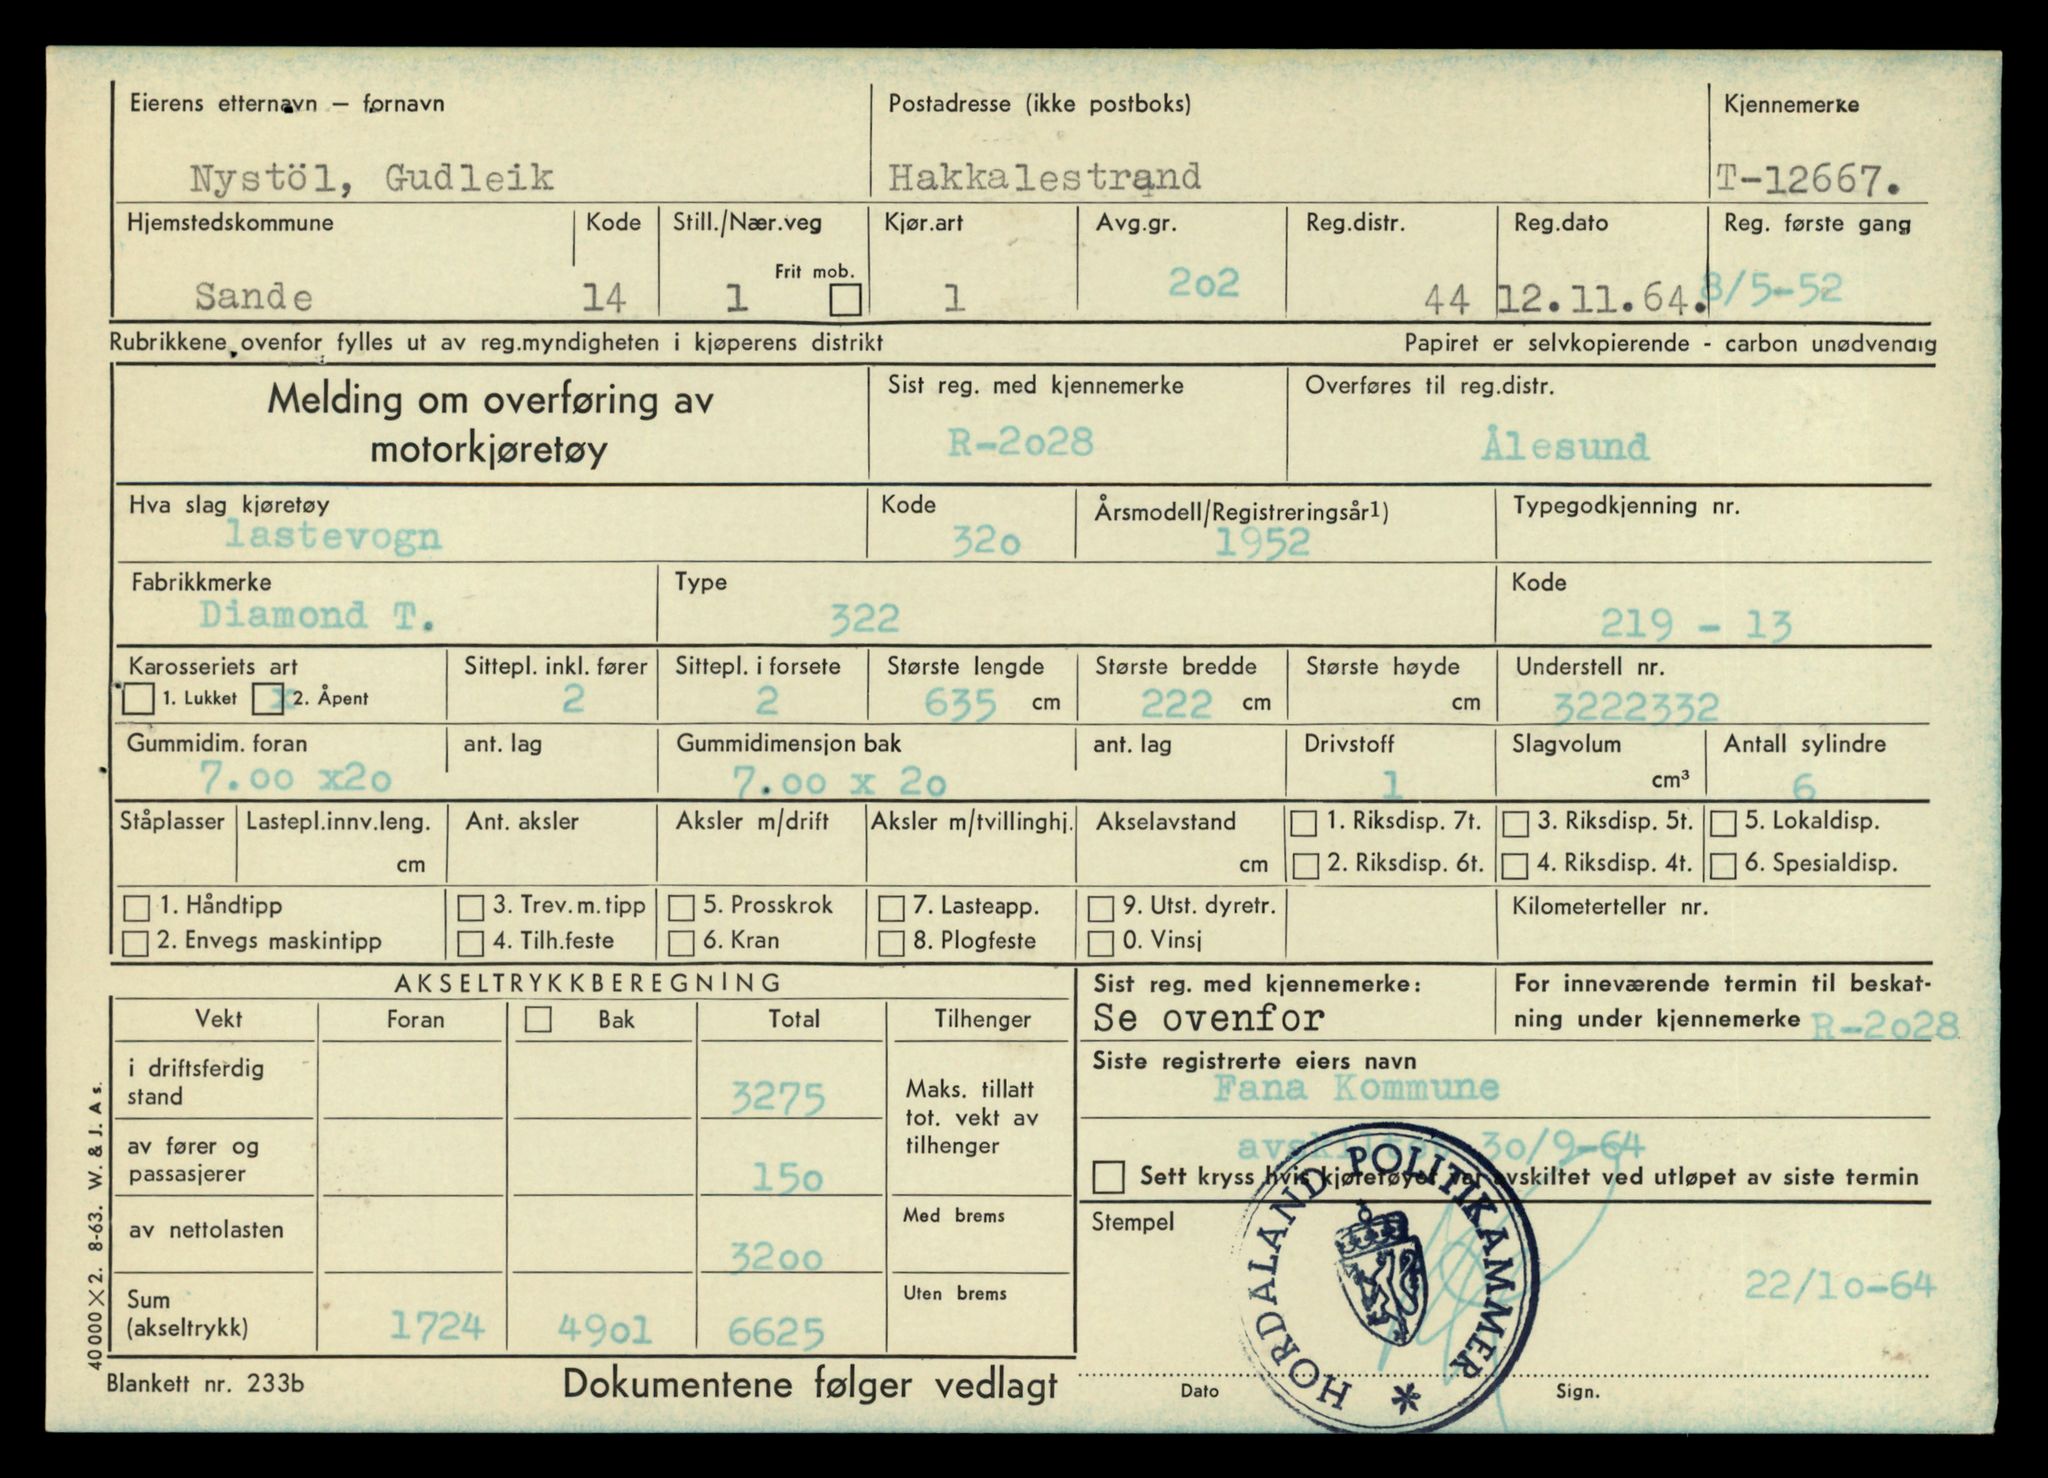 Eierens etternavn — fornavn Postadresse (ikke postboks) Kjennemerke
Nystöl, Gudleik Hakkalestrand T-12667.
Hjemstedskommune Kode Still./Nær.veg Kjør.art Avg.gr. Reg.distr. Reg.dato Reg. første gang
Frit mob.
Sande 14 1 1 202 44 12.11.64. 8/5-52
Rubrikkene ovenfor fylles ut av reg.myndigheten i kjøperens distrikt Papiret er selvkopierende - carbon unødvendig
Melding om overføring av
motorkjøretøy
Sist reg. med kjennemerke Overføres til reg.distr.
R-2028 Ålesund
Hva slag kjøretøy Kode Årsmodell/Registreringsår1) Typegodkjenning nr.
lastevogn 320 1952
Fabrikkmerke Type Kode
Diamond T. 322 219 - 13
Karosseriets art Sittepl. inkl. fører Sittepl. i forsete Største lengde Største bredde Største høyde Understell nr.
1. Lukket x 2. Åpent 2 2 635 cm 222 cm cm 3222332
Gummidim. foran ant. lag Gummidimensjon bak ant. lag Drivstoff Slagvolum Antall sylindre
7.00 x20 7.00 x 20 1 cm³ 6
Ståplasser Lastepl.innv.leng. Ant. aksler Aksler m/drift Aksler m/tvillinghj. Akselavstand 1. Riksdisp. 7t. 3. Riksdisp. 5t. 5. Lokaldisp.
cm cm 2. Riksdisp. 6t. 4. Riksdisp. 4t. 6. Spesialdisp.
1. Håndtipp 3. Trev. m. tipp 5. Prosskrok 7. Lasteapp. 9. Utst. dyretr. Kilometerteller nr.
2. Envegs maskintipp 4. Tilh.feste 6. Kran 8. Plogfeste 0. Vinsj
AKSELTRYKKBEREGNING
Vekt Foran Bak Total Tilhenger
i driftsferdig
stand 3275
Maks. tillatt
tot. vekt av
tilhenger
av fører og
passasjerer 150
av nettolasten 3200
Med brems
Sum
(akseltrykk) 1724 4901 6625
Uten brems
Sist reg. med kjennemerke: For inneværende termin til beskat-
Se ovenfor ning under kjennemerke R-2028
Siste registrerte eiers navn
Fana Kommune
avskiltet 30/9-64
Sett kryss hvis kjøretøyet var avskiltet ved utløpet av siste termin
Stempel
HORDALAND POLITIKAMMER
22/10-64
Dato Sign.
Blankett nr. 233b Dokumentene følger vedlagt
40000 X 2. 8-63. W. & J. A s.